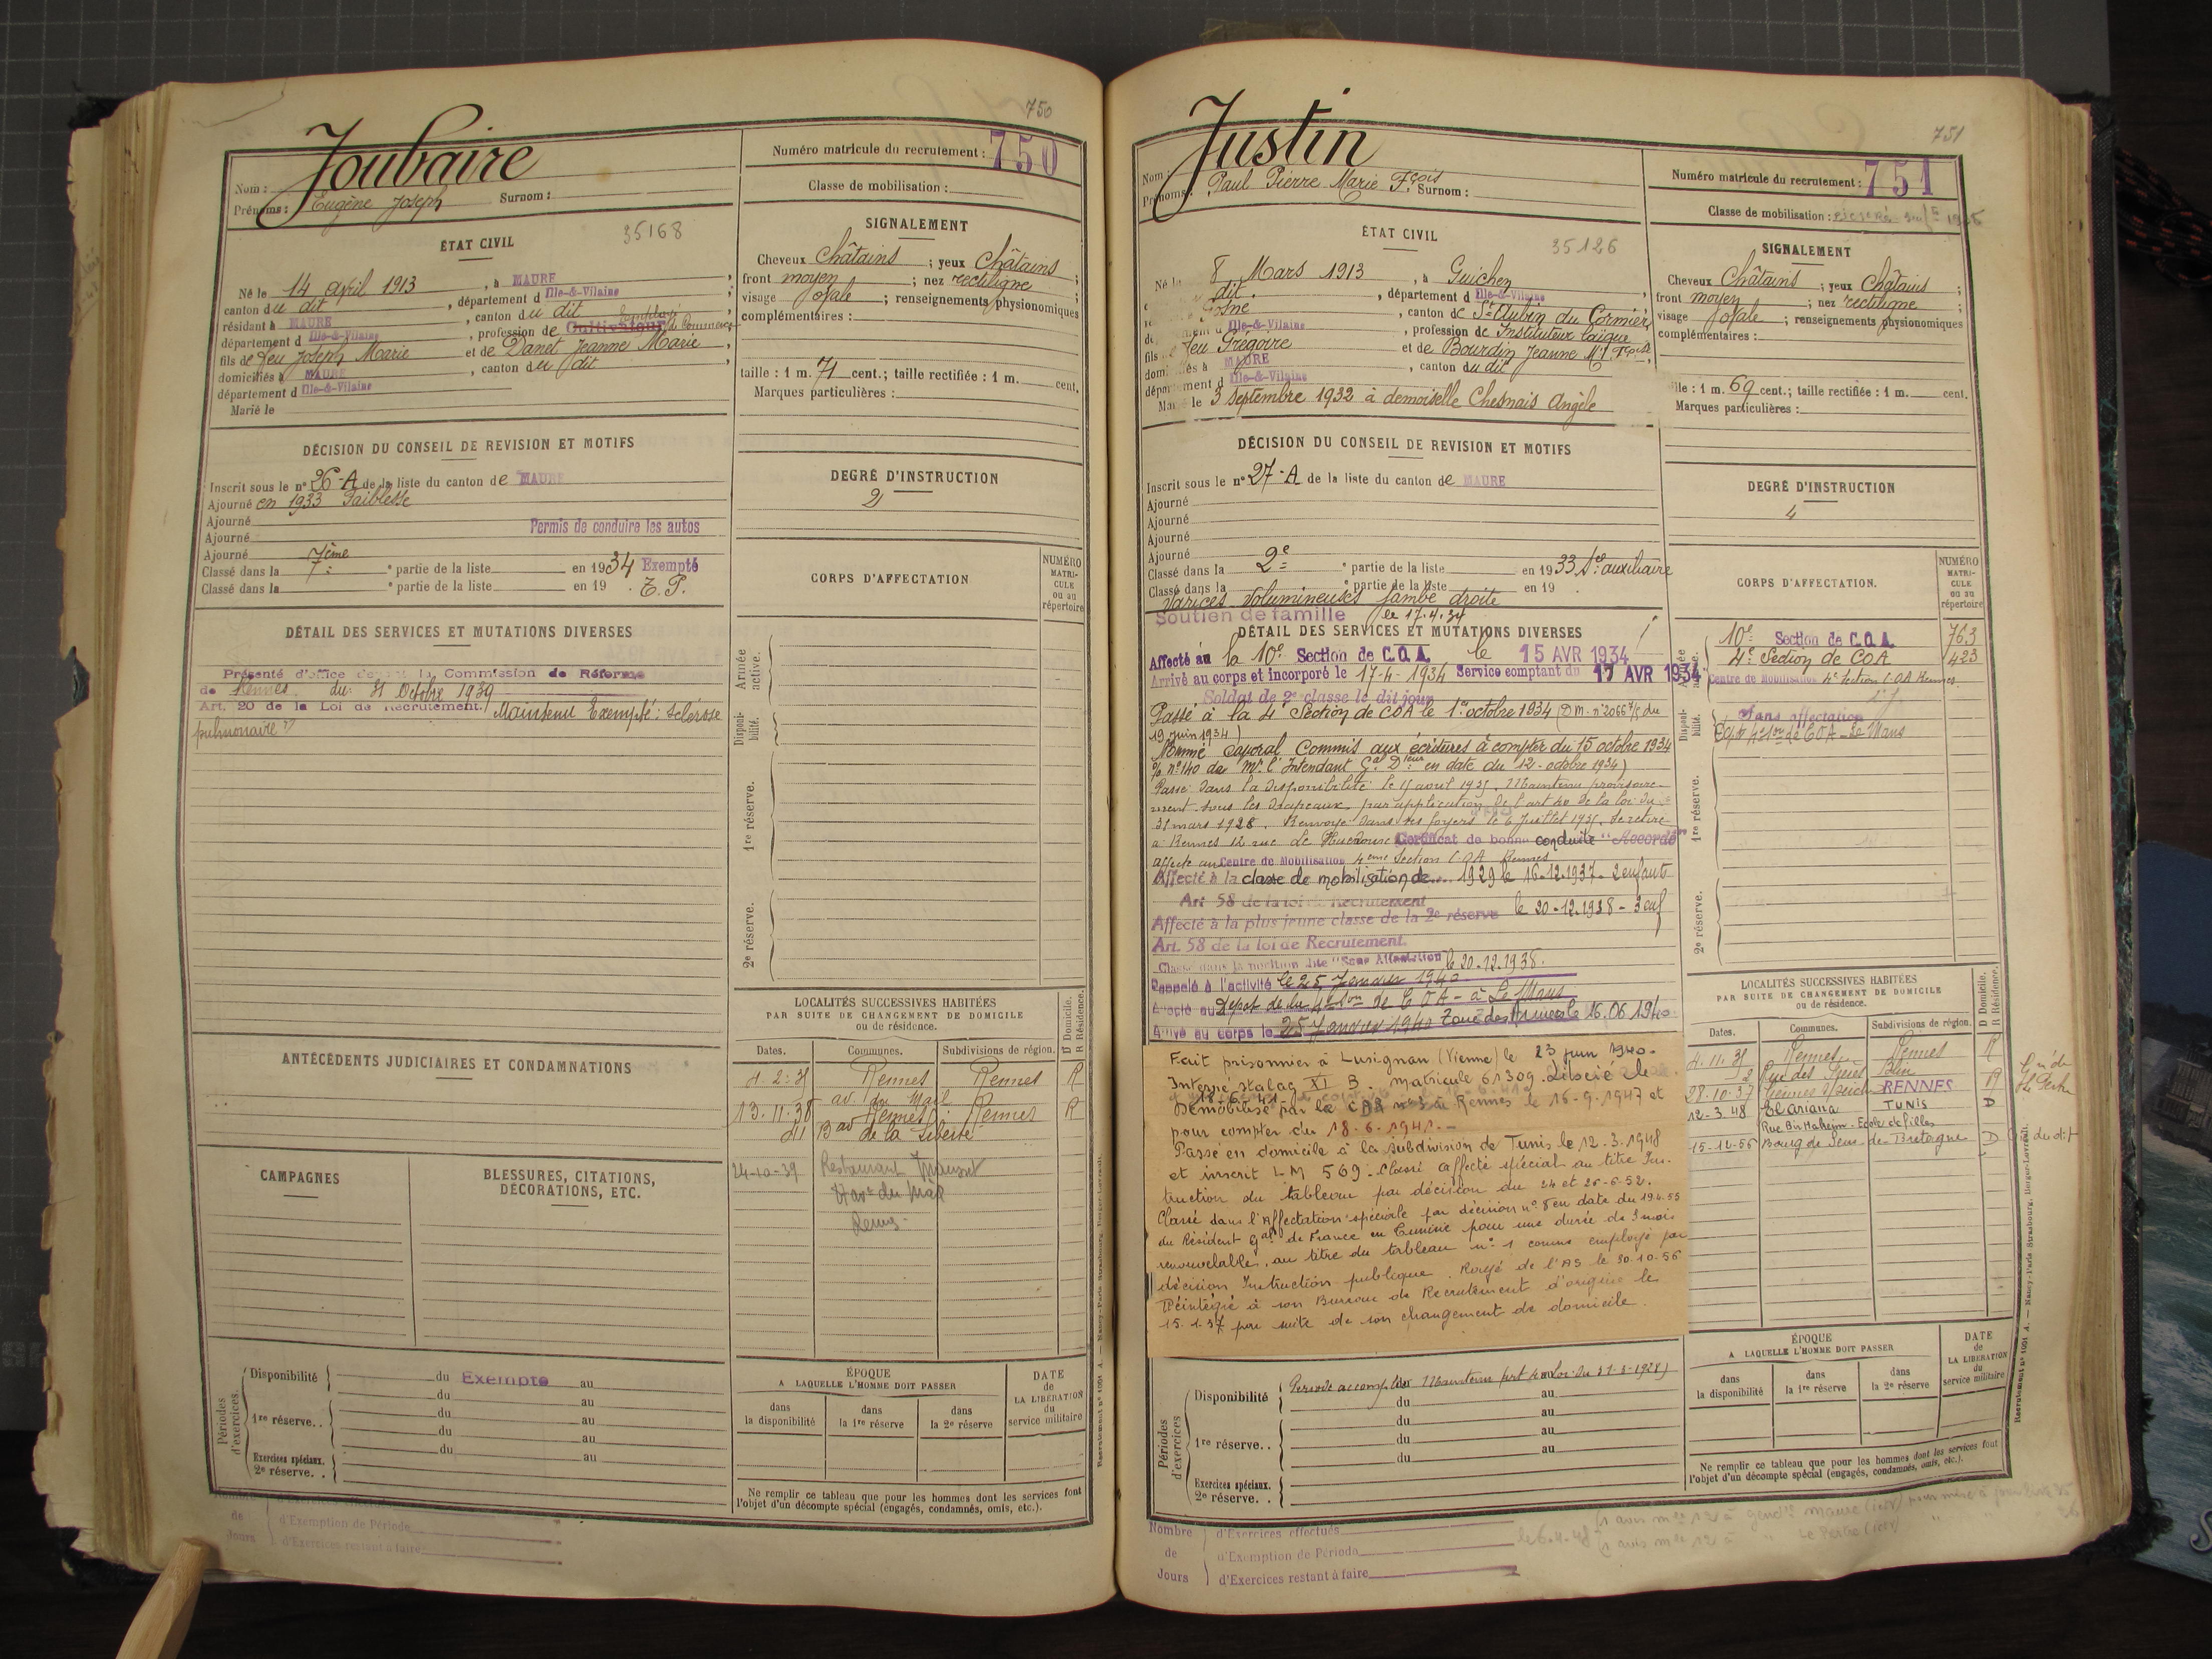 750
Joubaire
Nom :
Prénoms : Eugène Joseph Surnom :
Numéro matricule du recrutement : 750
Classe de mobilisation :
ÉTAT CIVIL
35168
Né le 14 avril 1913, à MAURE,
canton du dit, département d Ille-&-Vilaine,
résidant à MAURE, canton du dit
département d Ille-&-Vilaine, profession de Cultivateur Employé de Commerce
fils de feu Joseph Marie et de Danet Jeanne Marie,
domiciliés à MAURE, canton du dit
département d Ille-&-Vilaine
Marié le
SIGNALEMENT
Cheveux Châtains ; yeux Châtains ;
front moyen ; nez rectiligne ;
visage ovale ; renseignements physionomiques
complémentaires :
taille : 1 m. 71 cent.; taille rectifiée : 1 m. cent.
Marques particulières :
DÉCISION DU CONSEIL DE REVISION ET MOTIFS
Inscrit sous le n° 26-A de la liste du canton de MAURE
Ajourné en 1933 Faiblesse
Ajourné
Permis de conduire les autos
Ajourné
Ajourné 7ème
Classé dans la 7e partie de la liste en 1934 Exempté
Classé dans la e partie de la liste en 19 . T. P.
DEGRÉ D'INSTRUCTION
2
DÉTAIL DES SERVICES ET MUTATIONS DIVERSES
Présenté d'office devant la Commission de Réforme
de Rennes du 31 Octobre 1939
Art. 20 de la Loi de Recrutement. Maintenu Exempté : Sclérose
pulmonaire
CORPS D'AFFECTATION
NUMÉRO MATRICULE ou au répertoire
Armée active.
Disponibilité.
1re réserve.
2e réserve.
ANTÉCÉDENTS JUDICIAIRES ET CONDAMNATIONS
CAMPAGNES
BLESSURES, CITATIONS, DÉCORATIONS, ETC.
LOCALITÉS SUCCESSIVES HABITÉES
PAR SUITE DE CHANGEMENT DE DOMICILE
ou de résidence.
D Domicile.
R Résidence.
Dates. Communes. Subdivisions de région.
4.2.35 Rennes Rennes R
av. du Mail
13.11.38 Rennes Rennes R
41 Bd de la Liberté
24-10-39 Restaurant
du Mail
Rennes
Périodes d'exercices.
Disponibilité du Exempté au
du au
1re réserve.. du au
du au
du au
Exercices spéciaux.
2e réserve. .
ÉPOQUE
A LAQUELLE L'HOMME DOIT PASSER
dans la disponibilité
dans la 1re réserve
dans la 2e réserve
DATE de LA LIBÉRATION du service militaire
Ne remplir ce tableau que pour les hommes dont les services font
l'objet d'un décompte spécial (engagés, condamnés, omis, etc.).
de d'Exemption de Période
Jours d'Exercices restant à faire
Recrutement n° 1061 A. — Nancy-Paris-Strasbourg, Berger-Levrault.
751
Justin
Nom :
Prénoms : Paul Pierre Marie Fçois Surnom :
Numéro matricule du recrutement : 751
Classe de mobilisation :
ÉTAT CIVIL
35126
Né le 8 Mars 1913, à Guichen,
dit., département d Ille-&-Vilaine
Gosné, canton de St Aubin du Cormier,
Ille-&-Vilaine, profession de Instituteur laïque
fils feu Grégoire et de Bourdin Jeanne Mie Fçoise,
domiciliés à MAURE, canton du dit
département d Ille-&-Vilaine
Marié le 3 Septembre 1932 à demoiselle Chesnais Angèle
SIGNALEMENT
Cheveux Châtains ; yeux Châtains ;
front moyen ; nez rectiligne ;
visage ovale ; renseignements physionomiques
complémentaires :
taille : 1 m. 69 cent.; taille rectifiée : 1 m. cent.
Marques particulières :
DÉCISION DU CONSEIL DE REVISION ET MOTIFS
Inscrit sous le n° 27-A de la liste du canton de MAURE
Ajourné
Ajourné
Ajourné
Ajourné
Classé dans la 2e partie de la liste en 1933 Sce auxiliaire
Classé dans la e partie de la liste en 19 .
Varices volumineuses jambe droite
Soutien de famille le 17.4.34
DEGRÉ D'INSTRUCTION
4
DÉTAIL DES SERVICES ET MUTATIONS DIVERSES
Affecté au la 10e Section de C.O.A. le 15 AVR 1934
Arrivé au corps et incorporé le 17-4-1934 Service comptant du 17 AVR 1934
Soldat de 2e classe le dit jour
Passé à la 4e Section de COA le 1er octobre 1934 (DM. n° 2066 4/5 du
19 juin 1934)
Nommé Caporal Commis aux écritures à compter du 15 octobre 1934
% n° 140 de Mr. l'Intendant Gal Dteur en date du 12 - octobre 1934)
Passé dans la disponibilité le 15 avril 1935. Maintenu provisoire-
ment sous les drapeaux par application de l'art 40 de la loi du
31 mars 1928. Renvoyé dans ses foyers le 6 Juillet 1935. Se retire
à Rennes 12 rue de Certificat de bonne conduite "Accordé"
affecté au Centre de Mobilisation 4ème Section C.O.A. Rennes
Affecté à la classe de mobilisation de 1929 le 16-12-1937 - 2 enfants
Art 58 de la loi de Recrutement
Affecté à la plus jeune classe de la 2e réserve le 20-12-1938 - 3 enf
Art. 58 de la loi de Recrutement.
Classé dans la position dite "Sans Affectation" le 20.12.1938.
Rappelé à l'activité le 25 Janvier 1940
Affecté au Dépôt de la 4e Son de COA - à Le Mans
Arrivé au corps le 25 Janvier 1940 Zone des Armées le 16.06.1940.
Fait prisonnier à Lusignan (Vienne) le 23 juin 1940.
Interné stalag XI B. matricule 61309. Libéré le
18-6-41
Démobilisé par la à Rennes le 15-9-1947 et
pour compter du 18.6.1941.-
Passé en domicile à la subdivision de Tunis le 12.3.1948
et inscrit LM 569. Classé affecté spécial au titre Ins-
truction du tableau par décision du 24 et 26-6-52.
Classé dans l'Affectation spéciale par décision n° 8 en date du 19.4.55
du Résident Gal de France en Tunisie pour une durée de 3 mois
renouvelables, au titre du tableau n° 1 comme employé par
décision Instruction publique. Rayé de l'AS le 30.10.56
Réintégré à son Bureau de Recrutement d'origine le
15.1.57 par suite de son changement de domicile.
CORPS D'AFFECTATION.
NUMÉRO MATRICULE ou au répertoire
10e Section de C.O.A. 763
4e Section de COA 423
Centre de Mobilisation 4e Section COA Rennes
Disponibilité.
Sans affectation
Dépôt 4e Son de COA - Le Mans
1re réserve.
2e réserve.
LOCALITÉS SUCCESSIVES HABITÉES
PAR SUITE DE CHANGEMENT DE DOMICILE
ou de résidence.
D Domicile.
R Résidence.
Dates. Communes. Subdivisions de région.
4.11.35 Rennes Rennes R
28.10.37 RENNES R
12-3.48 El Ariana TUNIS D
Rue Bir Hakeim - École de filles
15-12-56 Bourg de Sens de Bretagne D du dit
Périodes d'exercices
Disponibilité Période accomplie Maintenu (art 40 loi du 31-3-1928)
du au
1re réserve. . du au
du au
du au
Exercices spéciaux.
2e réserve. .
ÉPOQUE
A LAQUELLE L'HOMME DOIT PASSER
dans la disponibilité
dans la 1re réserve
dans la 2e réserve
DATE de LA LIBÉRATION du service militaire
Ne remplir ce tableau que pour les hommes dont les services font
l'objet d'un décompte spécial (engagés, condamnés, omis, etc.).
Nombre d'Exercices effectués
de d'Exemption de Période
Jours d'Exercices restant à faire
Recrutement n° 1061 A. — Nancy-Paris-Strasbourg, Berger-Levrault.